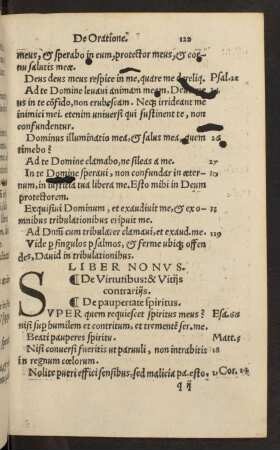 De Oratione. 122
meus, & sperabo in eum, protector meus, & cor-
nu salutis meæ.
Deus deus meus respice in me, quare me dereliq. Psal. 21
Ad te Domine leuaui animam meam, De
us in te cōfido, non erubescam. Neq; irrideant me
inimici mei. etenim uniuersi qui sustinent te, non
confundentur.
Dominus illuminatio mea, & salus mea, quem
timebo?
Ad te Domine clamabo, ne sileas a me. 27
In te Domine speraui, non confundar in æter-
num, in iustitia tua libera me. Esto mihi in Deum
protectorem.
Exquisiui Dominum, et exaudiuit me, & ex o- 33
mnibus tribulationibus eripuit me.
Ad Dñm cum tribularer clamaui, et exaud. me. 119
Vide p singulos psalmos, & ferme ubiq; offen
des, Dauid in tribulationibus.
LIBER NONVS.
¶ De Virtutibus: & Vitijs
contrarijs.
¶ De paupertate spiritus.
SVPER quem requiescet spiritus meus? Esa. 66
nisi sup humilem et contritum, et trementē ser. me.
Beati pauperes spiritu. Matt. 5
Nisi conuersi fueritis ut paruuli, non intrabitis 18
in regnum cœlorum.
Nolite pueri effici sensibus, sed malicia pa. esto. 1 Cor. 14
q ij